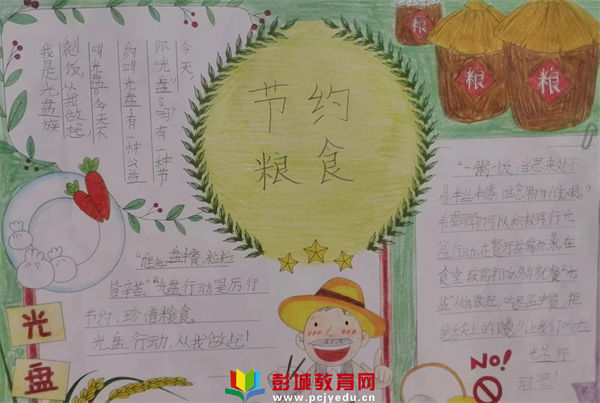 节约
粮食
粮
粮
粮
今天,
你“光盘”了吗?有一种节
约叫光盘,有一种公益
叫光盘。今天不
剩饭,从我做起,
我是光盘族
“谁知盘中餐,粒粒
皆辛苦。”光盘行动是厉行
节约,珍惜粮食,
光盘行动,从我做起!
光
盘
“一粥一饭,当思来处不
易半丝半缕,恒念物力维艰。”
希望同学们可以积极践行光
盘行动,在餐厅按需点
食堂按需打
盘”从我做起,吃光盘中餐,把
让我们
光盘行
动吧!
NO!
彭城教育网
www.pcjyedu.cn